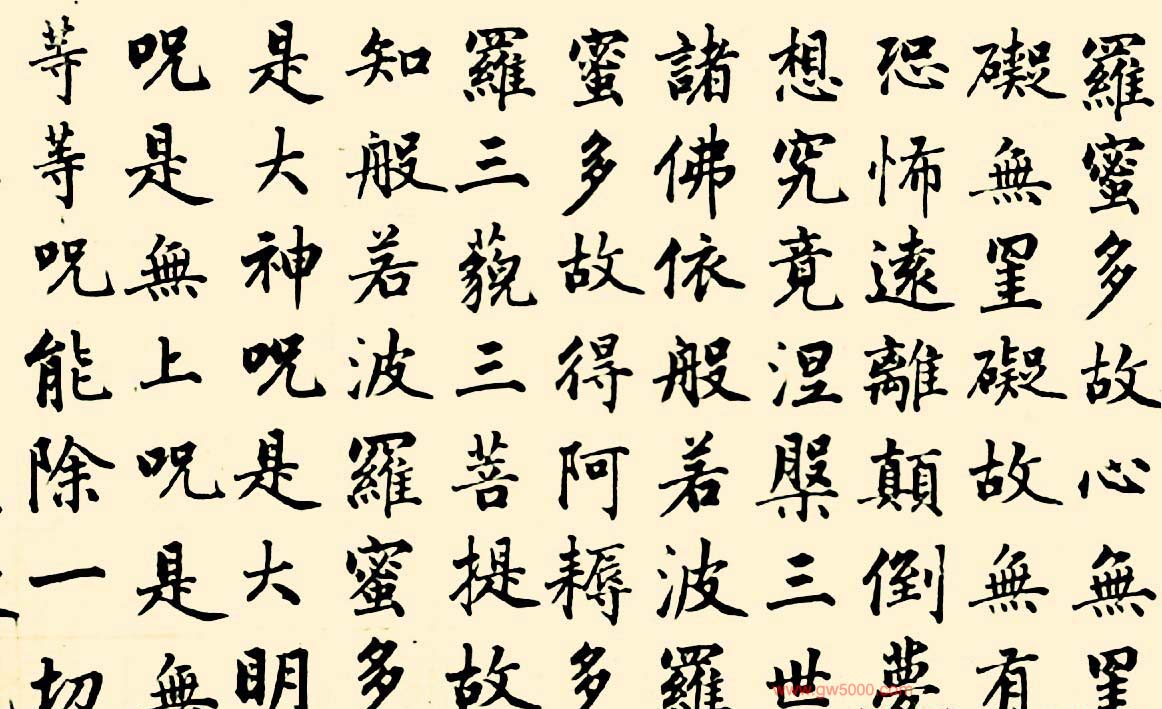 羅蜜多故心無罣
礙無罣礙故無有
恐怖遠離顛倒夢
想究竟涅槃三世
諸佛依般若波羅
蜜多故得阿耨多
羅三藐三菩提故
知般若波羅蜜多
是大神咒是大明
咒是無上咒是無
等等咒能除一切
www.gw5000.com